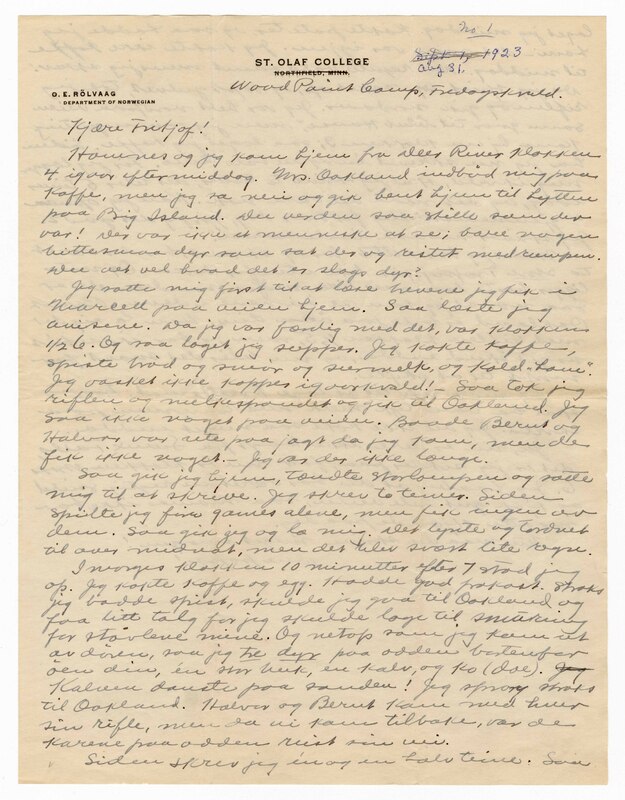 No 1
ST. OLAF COLLEGE
NORTHFIELD, MINN.
Sept. 1, 1923
Aug 31.
O. E. RÖLVAAG
DEPARTMENT OF NORWEGIAN
Wood Point Camp, Fredagskveld.
Kjære Fritjof!
Hovnnes og jeg kom hjem fra Deer River klokken
4 igaar eftermiddag. Mrs. Oakland indbød mig paa
kaffe, men jeg sa nei og gik beint hjem til hytten
paa Big Island. Du verden saa stille som der
var! Der var ikke et menneske at se; bare nogen
bittesmaa dyr som sat der og ristet med rumpen.
Du vet vel hvad det er slags dyr?
Jeg satte mig først til at læse brevene jeg fik i
Marcell paa veien hjem. Saa læste jeg
avisene. Da jeg var færdig med det, var klokken
1/2 6. Og saa laget jeg supper. Jeg kokte kaffe,
spiste brød og smør og surmelk, og kold "ham".
Jeg vasket ikke kopper igaarkveld! – Saa tok jeg
riflen og melkespandet og gik til Oakland. Jeg
saa ikke noget paa veien. Baade Bernt og
Halvor var ute paa jagt da jeg kom, men de
fik ikke noget. – Jeg var der ikke længe.
Saa gik jeg hjem, tændte storlampen og satte
mig til at skrive. Jeg skrev to timer. Siden
spilte jeg fire games alene, men fik ingen av
dem. Saa gik jeg og la mig. Det lynte og tordnet
til over midnat, men det blev svært lite regn.
I morges klokken 10 minutter efter 7 stod jeg
op. Jeg kokte kaffe og egg. Hadde god frokost. Straks
jeg hadde spist, skulde jeg gaa til Oakland og
faa litt talg for jeg skulde lage til smøring
for støvlene mine. Og netop som jeg kom ut
av døren, saa jeg tre dyr paa odden bortenfor
øen din, én stor buk, en kalv, og ko (doe). Jeg
Kalven danste paa sanden! Jeg sprang straks
til Oakland. Halvor og Bernt kom med hver
sin rifle, men da vi kom tilbake, var de
karene paa odden reist sin vei.
Siden skrev jeg en og en halv time. Saa